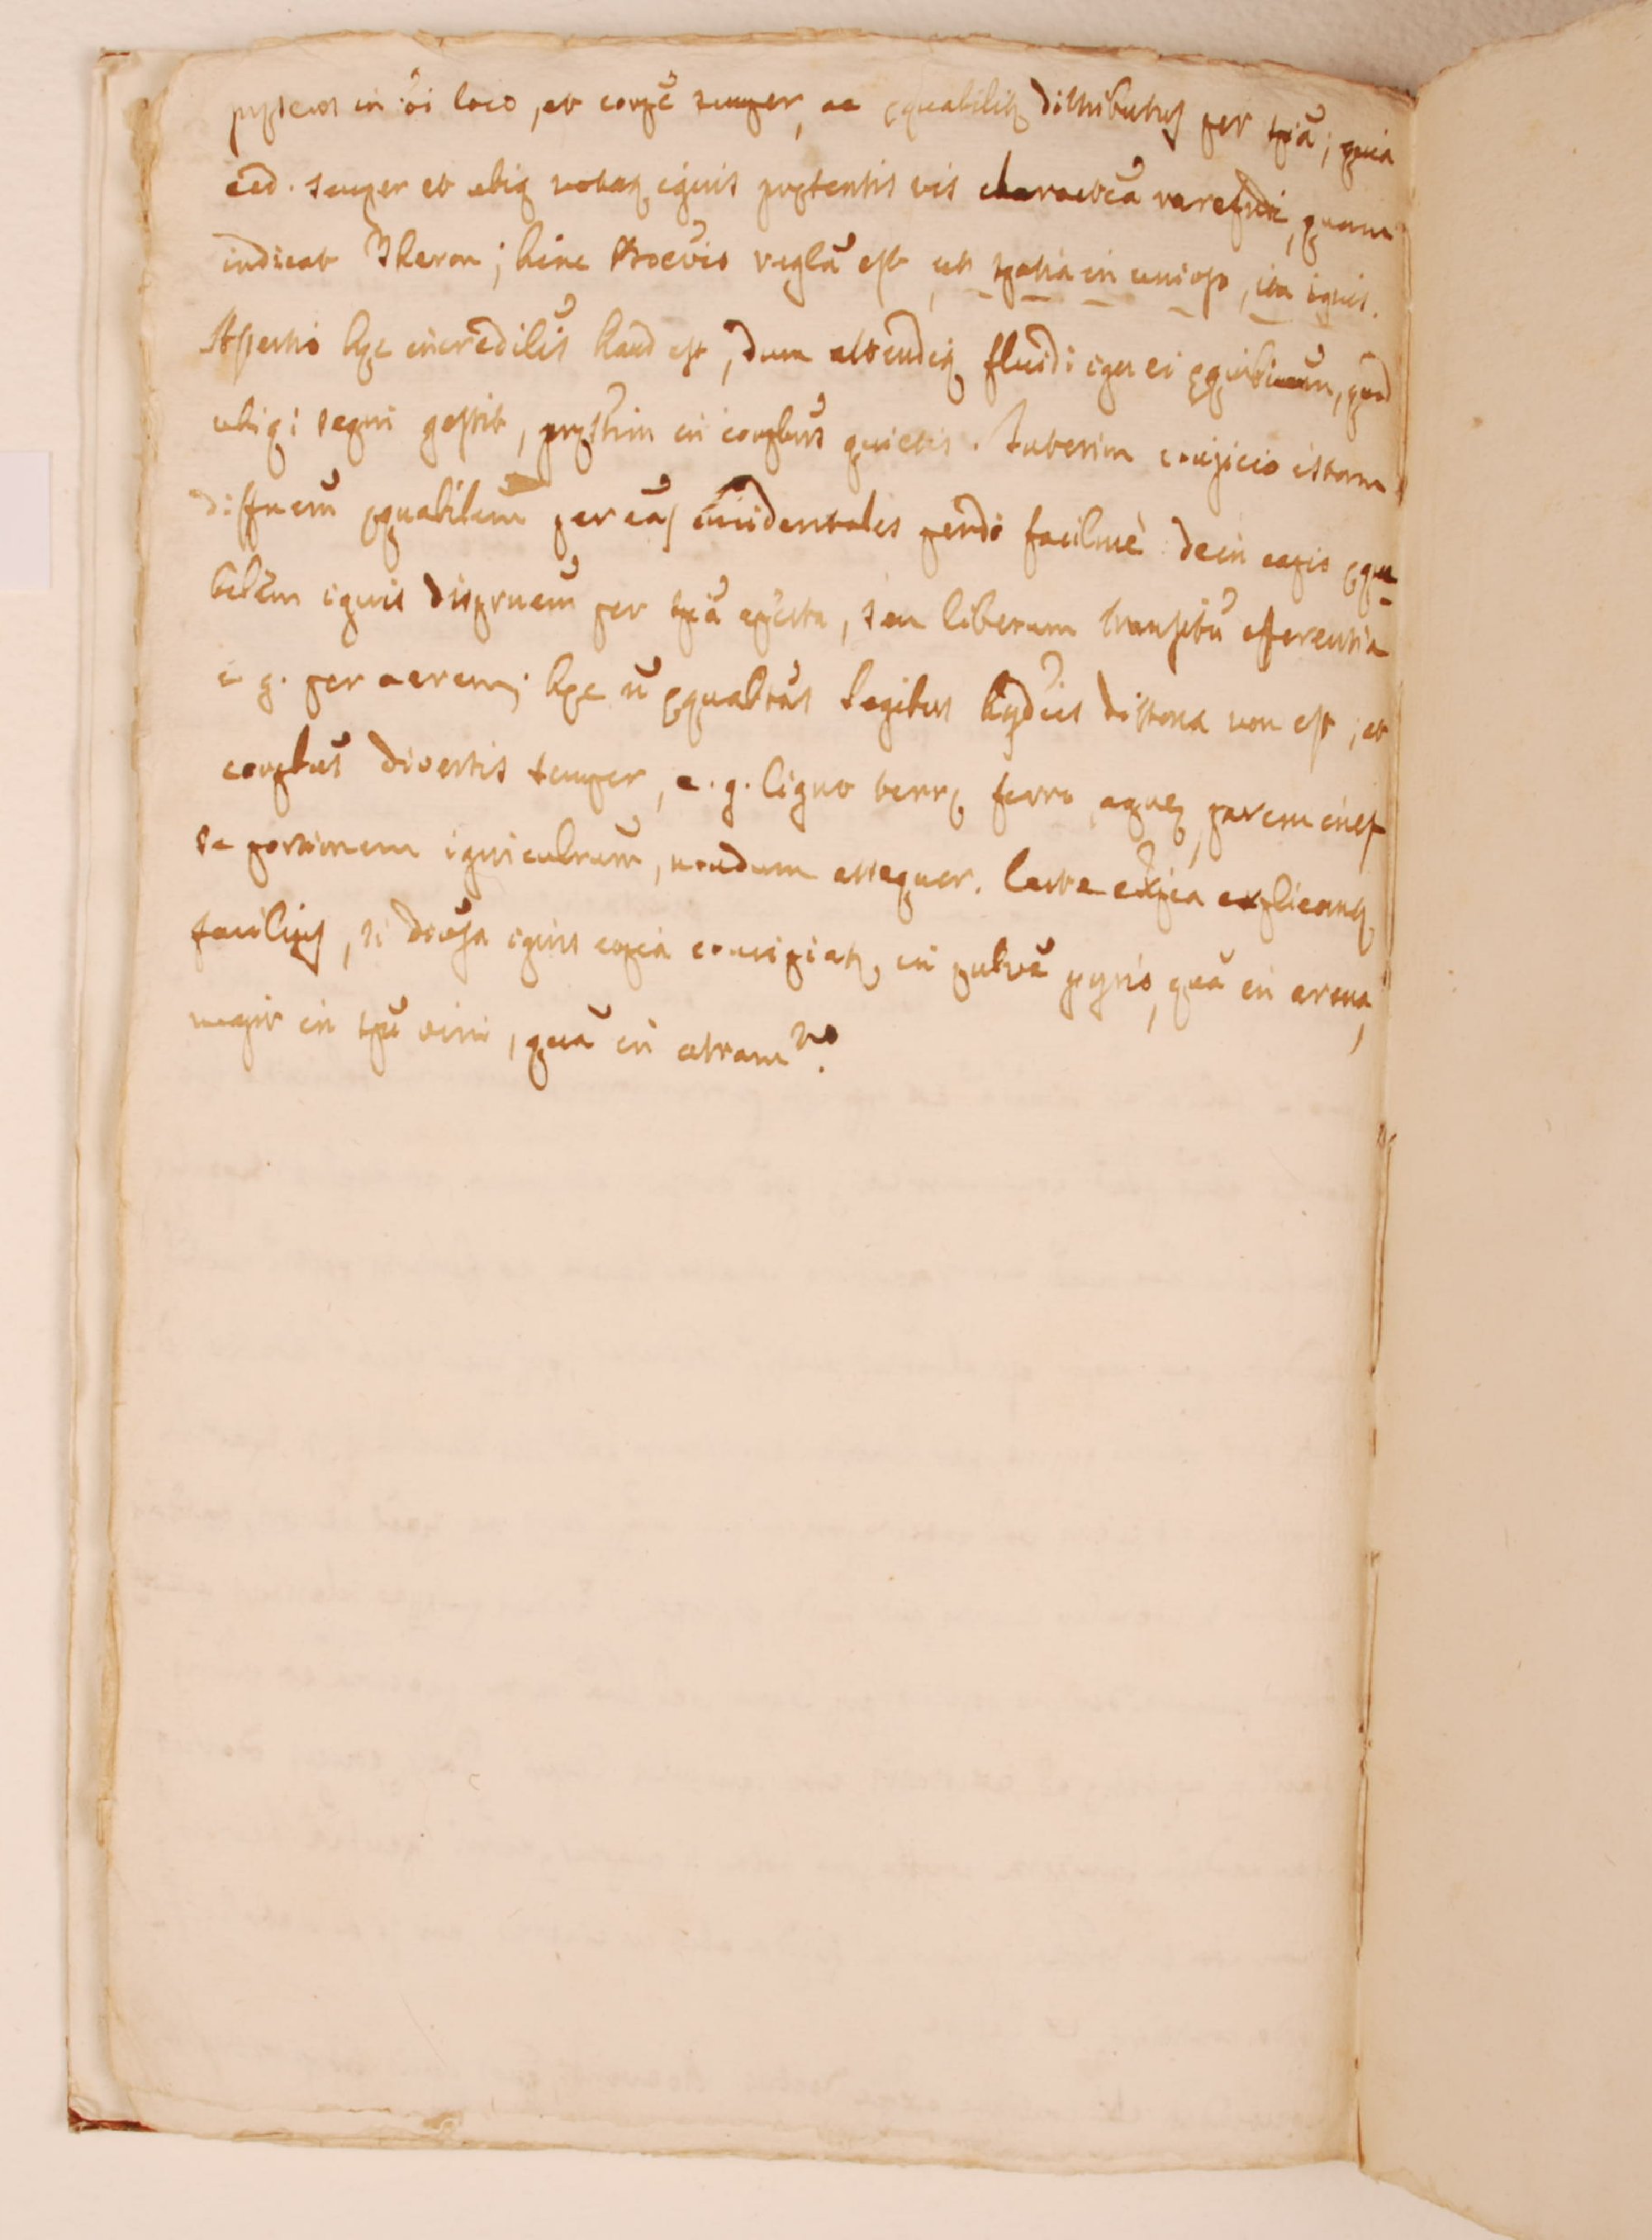 pręsens in oi loco, et corpe semper, ac ęquabilit distributus per spia; quia
ead. semper et ubiq notat ignis pręsentis vis characteca rarefndi, quam
indicat Therm; hinc Boevio regla est, uti spatia in univso, ita ignis.
Assertio hęc incredibilis haud est, dum attendit fluidi ignei ęquibrium, quod
ubiq; segui gestit, pręstim in corpbus quietis. Interim conjicio istam
diffnem ęquabilem per eas incidentales perdi facilme: dein capio ęqua
bilem ignis dispnem per spia aperta, seu liberum transitu offerentia
e. g. per aerem; hęc n ęqualtas legibus hydcis dissona non est; et
corpbus diversis semper, e. g. ligno terrę ferro, aquę, parem ines
se portionem igniculorum, nondum assequor. Certe expia explicant
facilius, si divsa ignis copia concipiat in pulve pyrio, qua in arena,
magis in spu vini, qua in atramto.